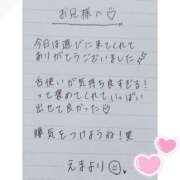 お兄様へ♡
今日は遊びに来てくれて
ありがとうございました
舌使いが気持ち良すぎる!
って褒めてくれていっぱい
出せて良かった♡
腰気をつけようね!笑
えまより